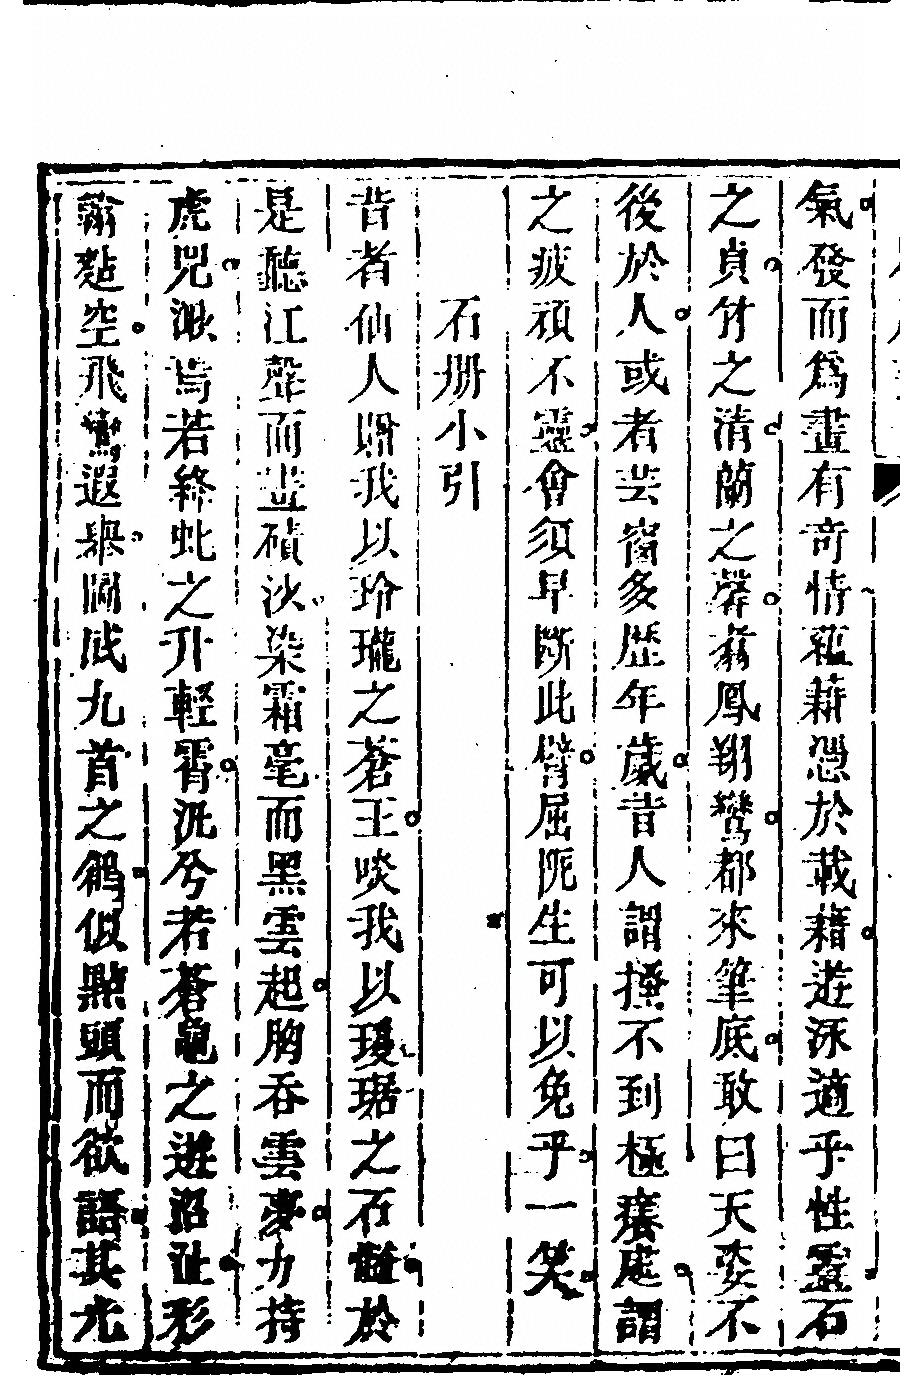 氣發而爲畫有奇情蘊藉憑於載藉遊泳適乎性靈石
之貞竹之清蘭之馨翥鳳翔鸞都來筆底敢曰天姿不
後於人或者芸窗多歷年歲昔人謂搔不到極癢處謂
之疲頑不靈會須早斷此臂屈阨生可以免乎一笑
石册小引
昔者仙人贈我以玲瓏之蒼玉啖我以瓊琚之石髓於
是聽江聲而畫磧沙染霜毫而黑雲起胸吞雲夢力持
虎兕潑焉若絳虬之升輕霄汎兮若蒼龍之遊沼沚形
空飛鸞遐舉圖成九首之鶬似點頭而欲語其光